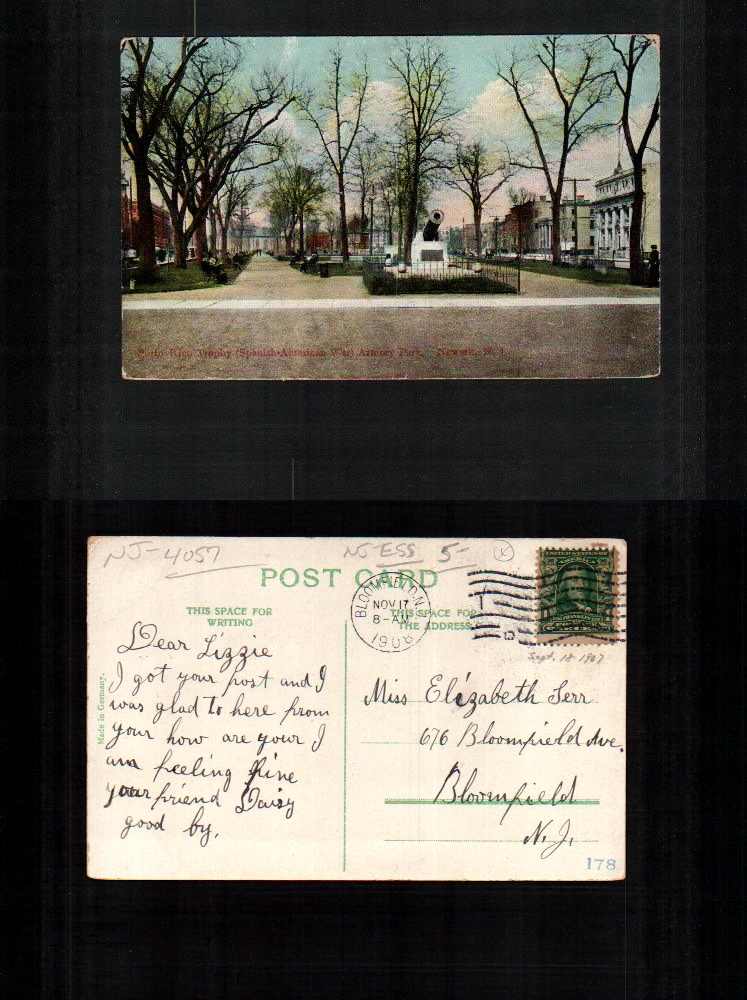 Porto Rico Trophy (Spanish-American War) Armory Park, Newark, N. J.
NJ-4057
NJ-ESS 5- X
POST CARD
THIS SPACE FOR
WRITING
THIS SPACE FOR
THE ADDRESS
BLOOMFIELD, N.J.
NOV 17
8-AM
1908
UNITED STATES OF
Sept. 18 1907
Made in Germany.
Dear Lizzie
I got your post and I
was glad to here from
your how are your I
am feeling fine
your friend Daisy
good by.
Miss Elizabeth Serr
676 Bloomfield Ave.
Bloomfield
N.J.
178